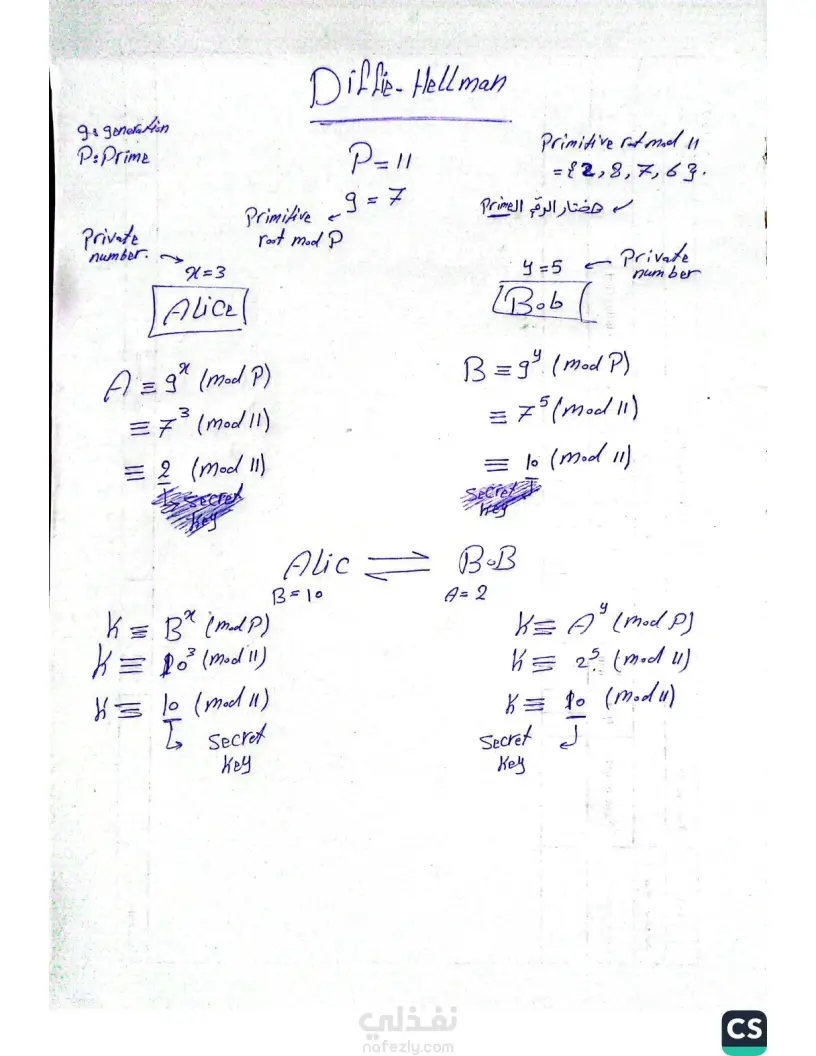 Diffie-Hellman
g: generation
P: Prime
P = 11
g = 7
Primitive root mod P
Primitive root mod 11
= {2, 8, 7, 6}.
هنختار الرقم الprime
Private
number.
x = 3
Alice
y = 5
Private
number
Bob
A ≡ g^x (mod P)
≡ 7^3 (mod 11)
≡ 2 (mod 11)
Secret
Key
B ≡ g^y (mod P)
≡ 7^5 (mod 11)
≡ 10 (mod 11)
Secret
Key
Alic ⇌ BoB
B = 10
A = 2
K ≡ B^x (mod P)
K ≡ 10^3 (mod 11)
K ≡ 10 (mod 11)
Secret
Key
K ≡ A^y (mod P)
K ≡ 2^5 (mod 11)
K ≡ 10 (mod 11)
Secret
Key
نفذلي
nafezly.com
CS